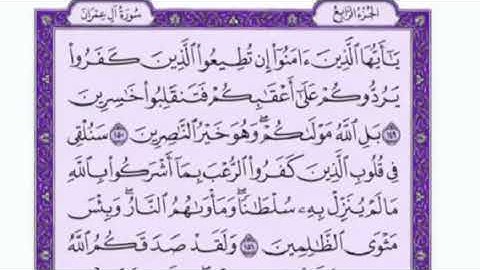 الجزء الرابع سورة آل عمران
يَٰٓأَيُّهَا ٱلَّذِينَ ءَامَنُوٓا۟ إِن تُطِيعُوا۟ ٱلَّذِينَ كَفَرُوا۟
يَرُدُّوكُمْ عَلَىٰٓ أَعْقَٰبِكُمْ فَتَنقَلِبُوا۟ خَٰسِرِينَ
١٤٩ بَلِ ٱللَّهُ مَوْلَىٰكُمْ ۖ وَهُوَ خَيْرُ ٱلنَّٰصِرِينَ ١٥٠ سَنُلْقِى
فِى قُلُوبِ ٱلَّذِينَ كَفَرُوا۟ ٱلرُّعْبَ بِمَآ أَشْرَكُوا۟ بِٱللَّهِ
مَا لَمْ يُنَزِّلْ بِهِۦ سُلْطَٰنًا ۖ وَمَأْوَىٰهُمُ ٱلنَّارُ ۚ وَبِئْسَ
مَثْوَى ٱلظَّٰلِمِينَ ١٥١ وَلَقَدْ صَدَقَكُمُ ٱللَّهُ